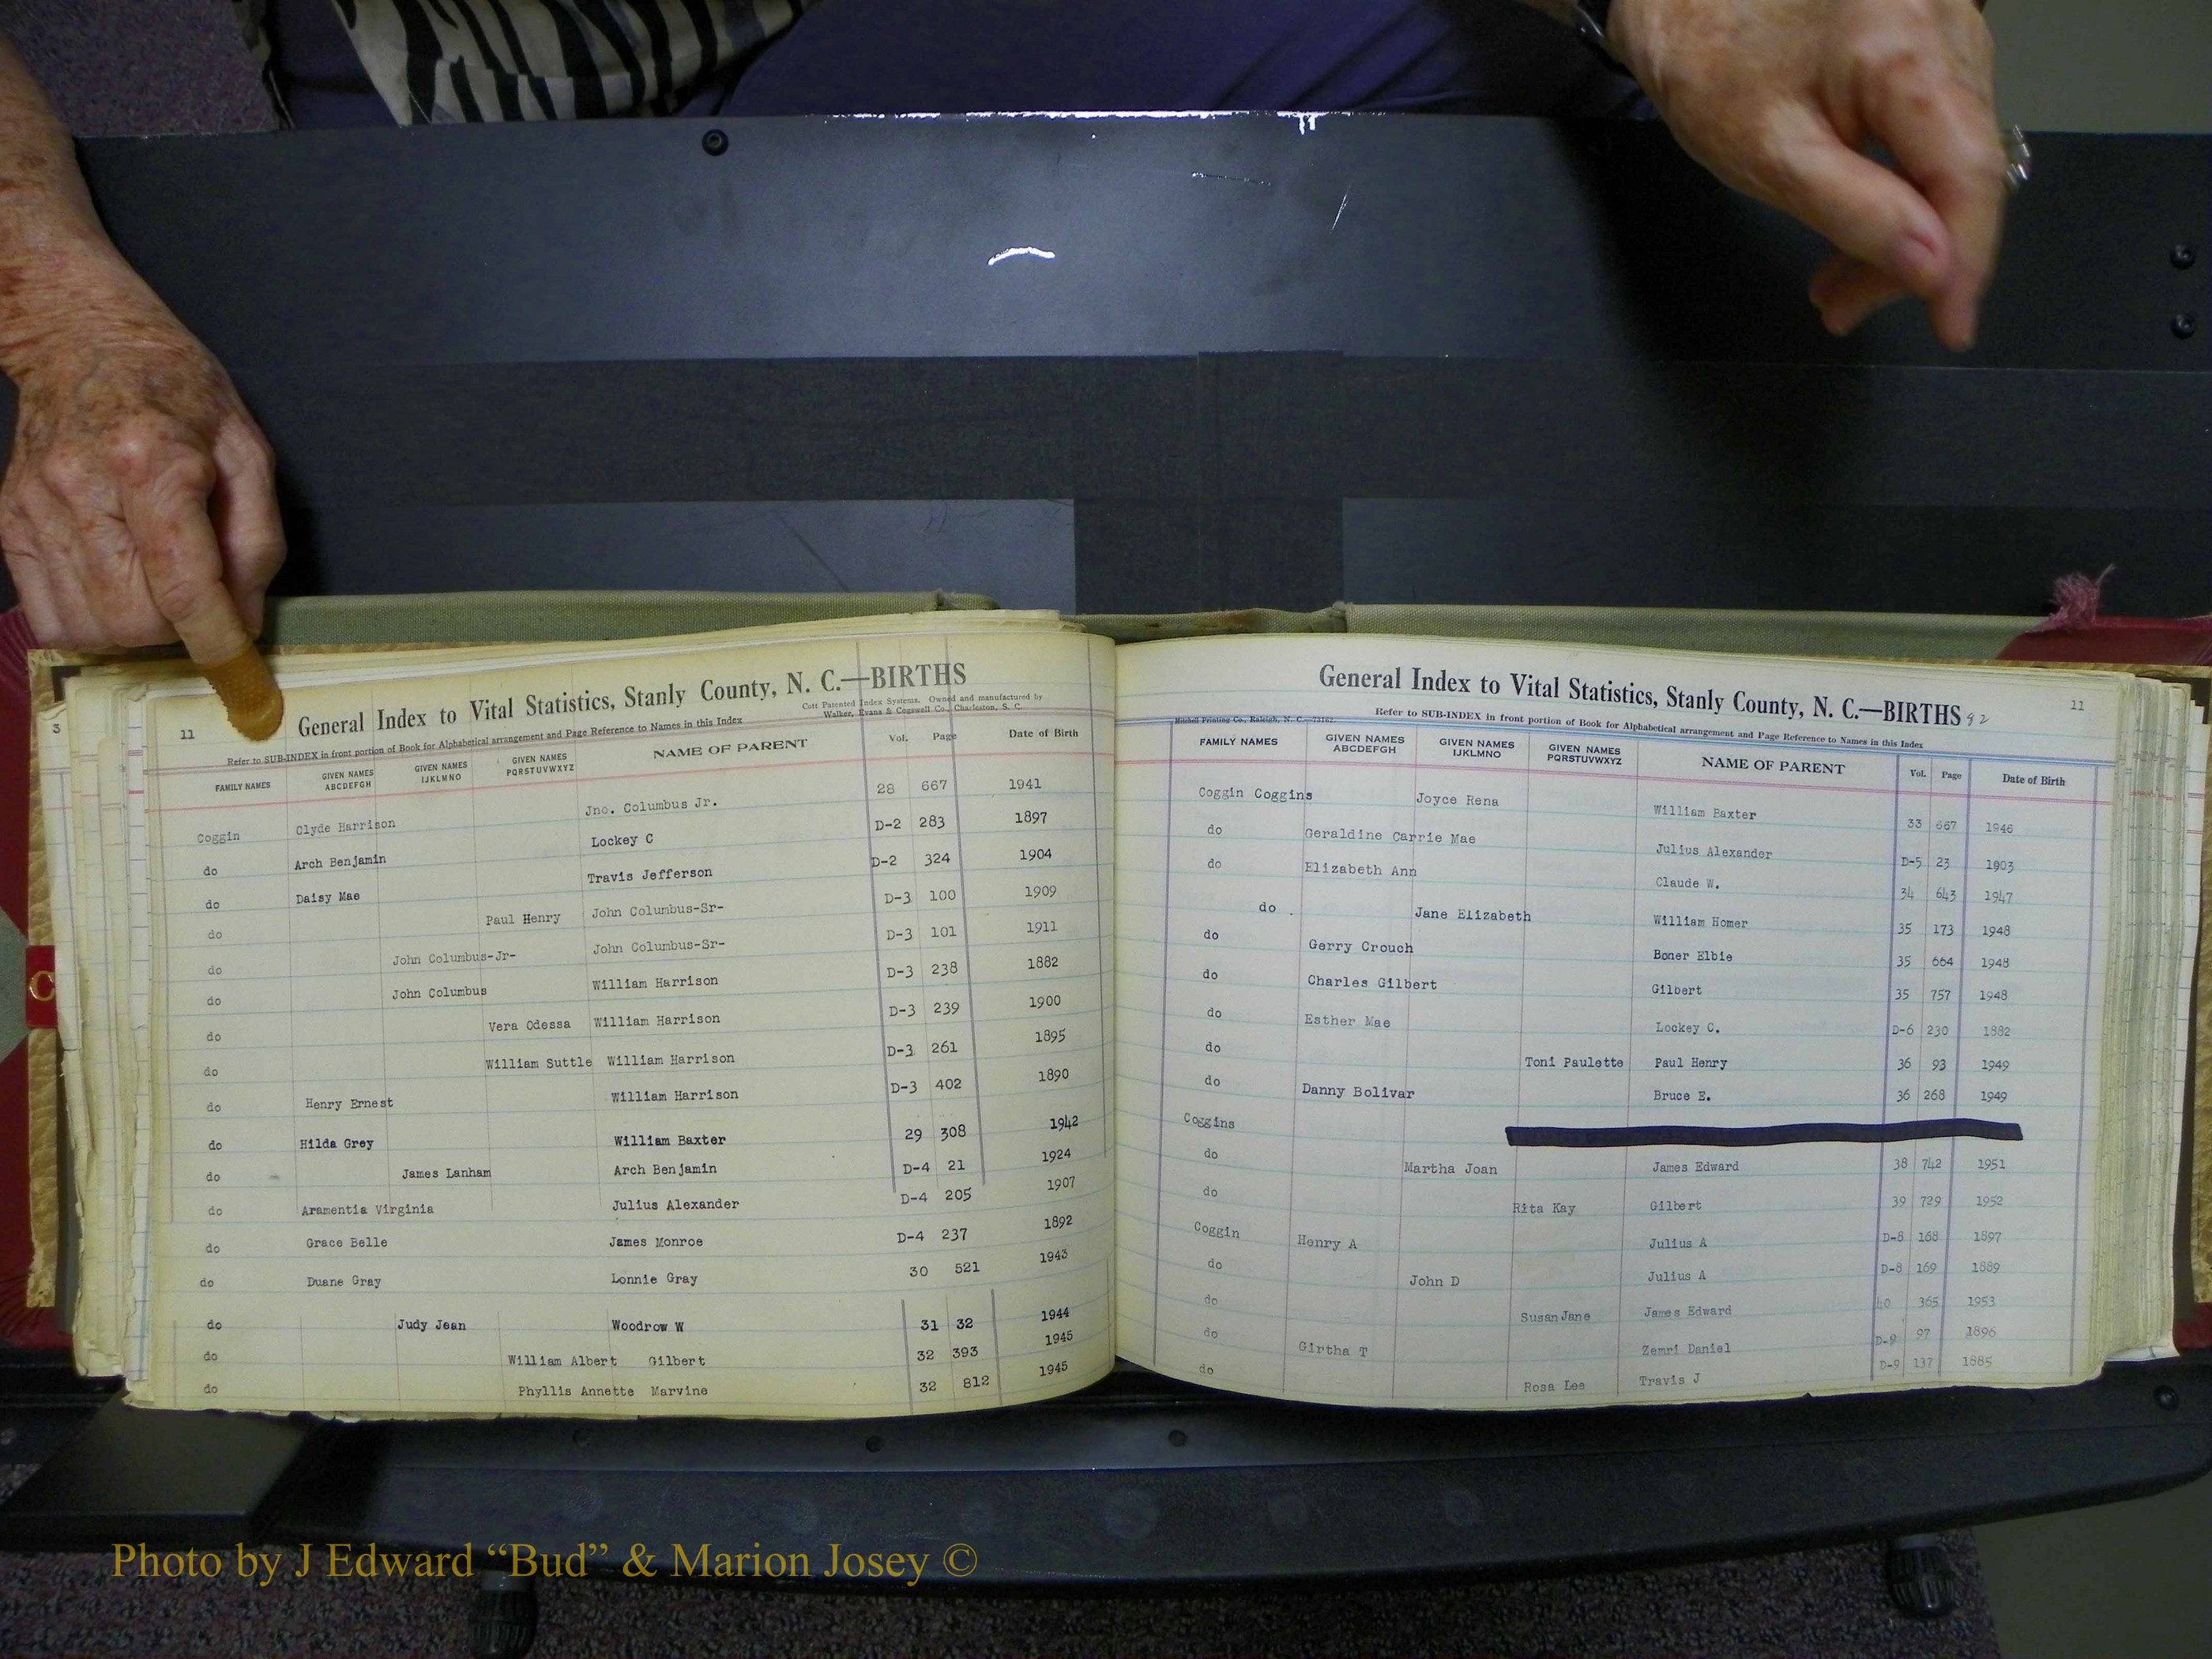 3
C
11
General Index to Vital Statistics, Stanly County, N. C.—BIRTHS
Cott Patented Index Systems. Owned and manufactured by
Walker, Evans & Cogswell Co., Charleston, S. C.
Refer to SUB-INDEX in front portion of Book for Alphabetical arrangement and Page Reference to Names in this Index
FAMILY NAMES GIVEN NAMES ABCDEFGH GIVEN NAMES IJKLMNO GIVEN NAMES PQRSTUVWXYZ NAME OF PARENT Vol. Page Date of Birth
Coggin Clyde Harrison Jno. Columbus Jr. 28 667 1941
do Arch Benjamin Lockey C D-2 283 1897
do Daisy Mae Travis Jefferson D-2 324 1904
do Paul Henry John Columbus-Sr- D-3 100 1909
do John Columbus-Jr- John Columbus-Sr- D-3 101 1911
do John Columbus William Harrison D-3 238 1882
do Vera Odessa William Harrison D-3 239 1900
do William Suttle William Harrison D-3 261 1895
do Henry Ernest William Harrison D-3 402 1890
do Hilda Grey William Baxter 29 308 1942
do James Lanham Arch Benjamin D-4 21 1924
do Aramentia Virginia Julius Alexander D-4 205 1907
do Grace Belle James Monroe D-4 237 1892
do Duane Gray Lonnie Gray 30 521 1943
do Judy Jean Woodrow W 31 32 1944
do William Albert Gilbert 32 393 1945
do Phyllis Annette Marvine 32 812 1945
General Index to Vital Statistics, Stanly County, N. C.—BIRTHS 92
11
Mitchell Printing Co., Raleigh, N. C.
Refer to SUB-INDEX in front portion of Book for Alphabetical arrangement and Page Reference to Names in this Index
FAMILY NAMES GIVEN NAMES ABCDEFGH GIVEN NAMES IJKLMNO GIVEN NAMES PQRSTUVWXYZ NAME OF PARENT Vol. Page Date of Birth
Coggin Coggins Joyce Rena William Baxter 33 667 1946
do Geraldine Carrie Mae Julius Alexander D-5 23 1903
do Elizabeth Ann Claude W. 34 643 1947
do . Jane Elizabeth William Homer 35 173 1948
do Gerry Crouch Boner Elbie 35 664 1948
do Charles Gilbert Gilbert 35 757 1948
do Esther Mae Lockey C. D-6 230 1882
do Toni Paulette Paul Henry 36 93 1949
do Danny Bolivar Bruce E. 36 268 1949
Coggins
do Martha Joan James Edward 38 742 1951
do Rita Kay Gilbert 39 729 1952
Coggin Henry A Julius A D-8 168 1897
do John D Julius A D-8 169 1889
do Susan Jane James Edward 40 365 1953
do Girtha T Zemri Daniel D-9 97 1896
do Rosa Lee Travis J D-9 137 1885
Photo by J Edward “Bud” & Marion Josey ©